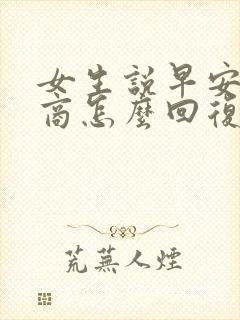 女生説早安
商怎麼回復
荒蕪人煙